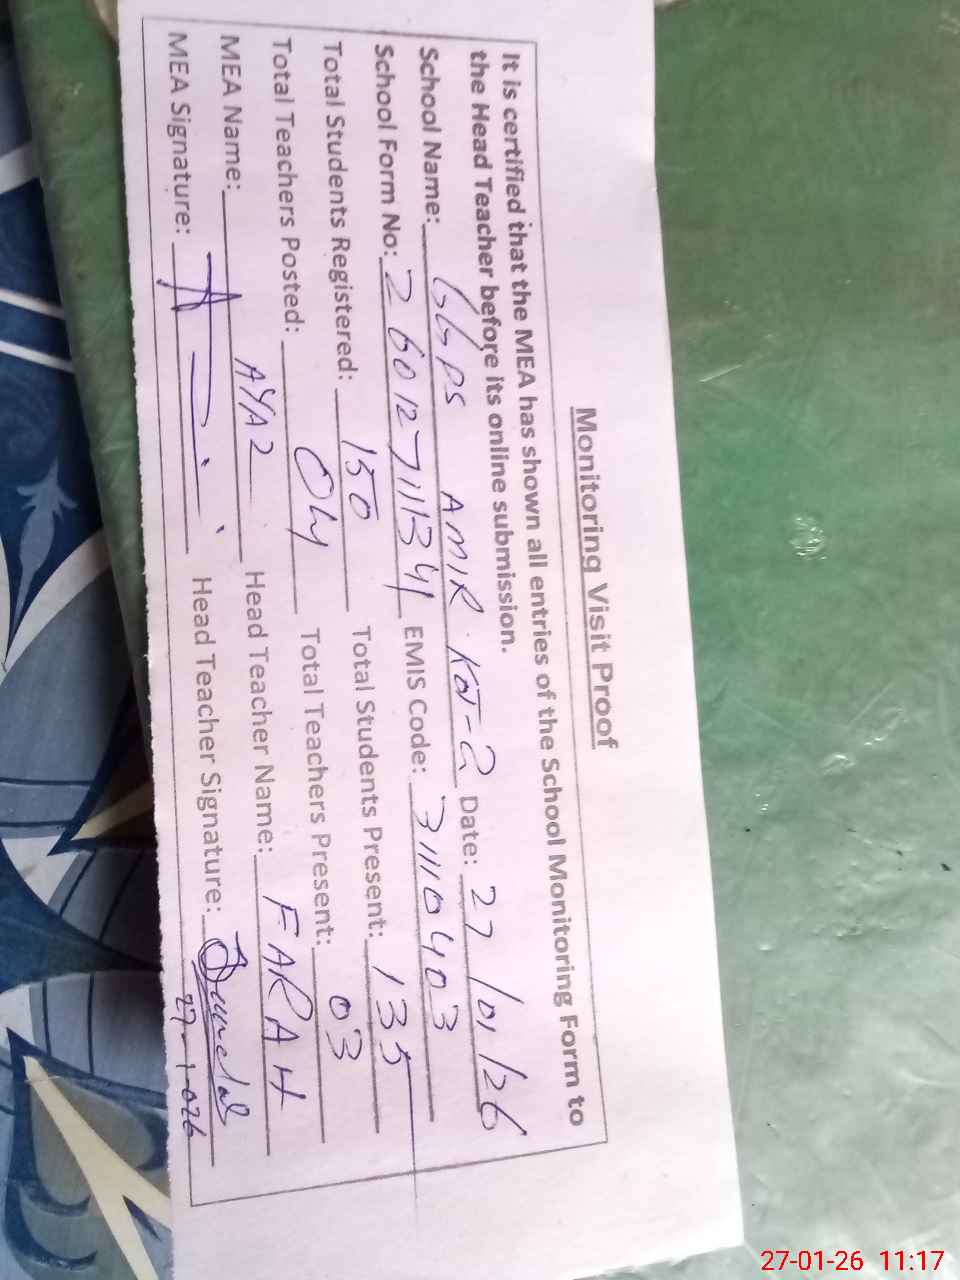 Monitoring Visit Proof
It is certified that the MEA has shown all entries of the School Monitoring Form to
the Head Teacher before its online submission.
School Name: GGPS AMIR KOT-2 Date: 27/01/26
School Form No: EMIS Code: 31110403
Total Students Registered: 150 Total Students Present: 135
Total Teachers Posted: 04 Total Teachers Present: 03
MEA Name: AYAZ Head Teacher Name: FARAH
MEA Signature: Head Teacher Signature:
27-1-026
27-01-26 11:17